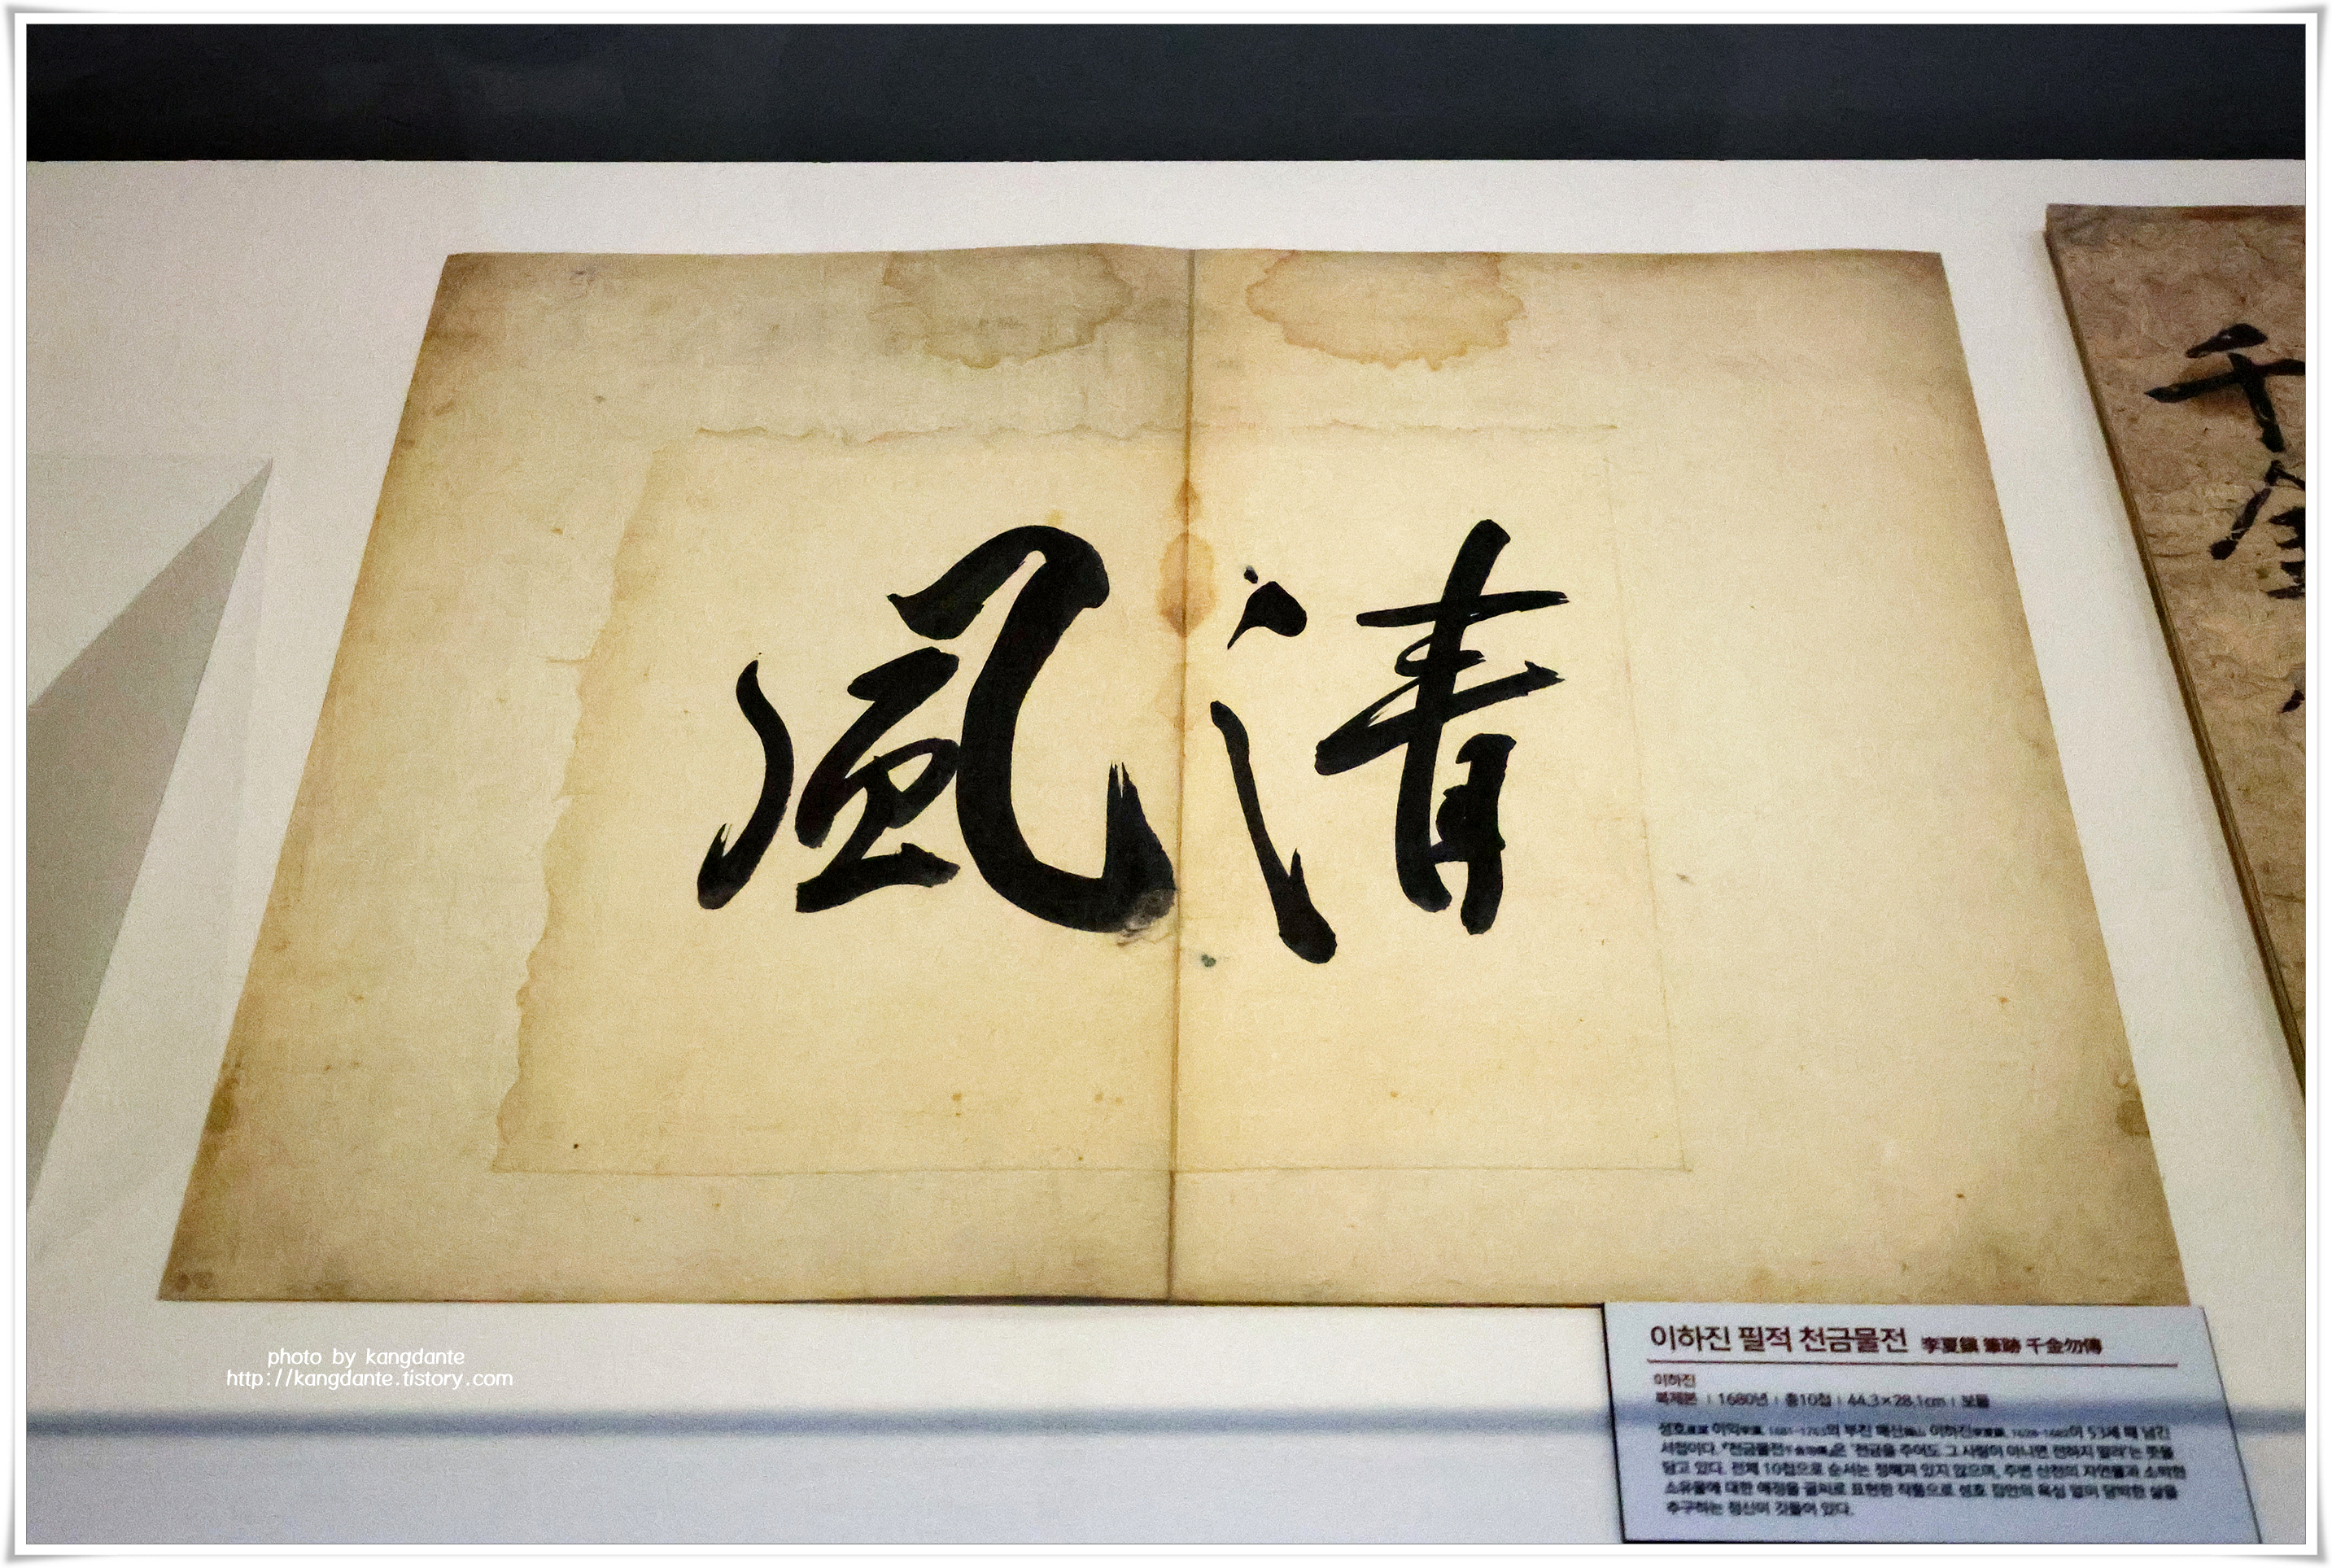 清風
千金
photo by kangdante
http://kangdante.tistory.com
이하진 필적 천금물전 李夏鎭 筆跡 千金勿傳
이하진
복제본 | 1680년 | 총10첩 | 44.3×28.1cm | 보물
성호 이익 1681~1763의 부친 매산 이하진 1628~1682이 53세 때 남긴
서첩이다. 『천금물전』은 '천금을 주어도 그 사람이 아니면 전하지 말라'는 뜻을
담고 있다. 전체 10첩으로 순서는 정해져 있지 않으며, 주변 산천의 자연물과 소박한
소유물에 대한 애정을 글씨로 표현한 작품으로 성호 집안의 욕심 없이 담박한 삶을
추구하는 정신이 깃들어 있다.